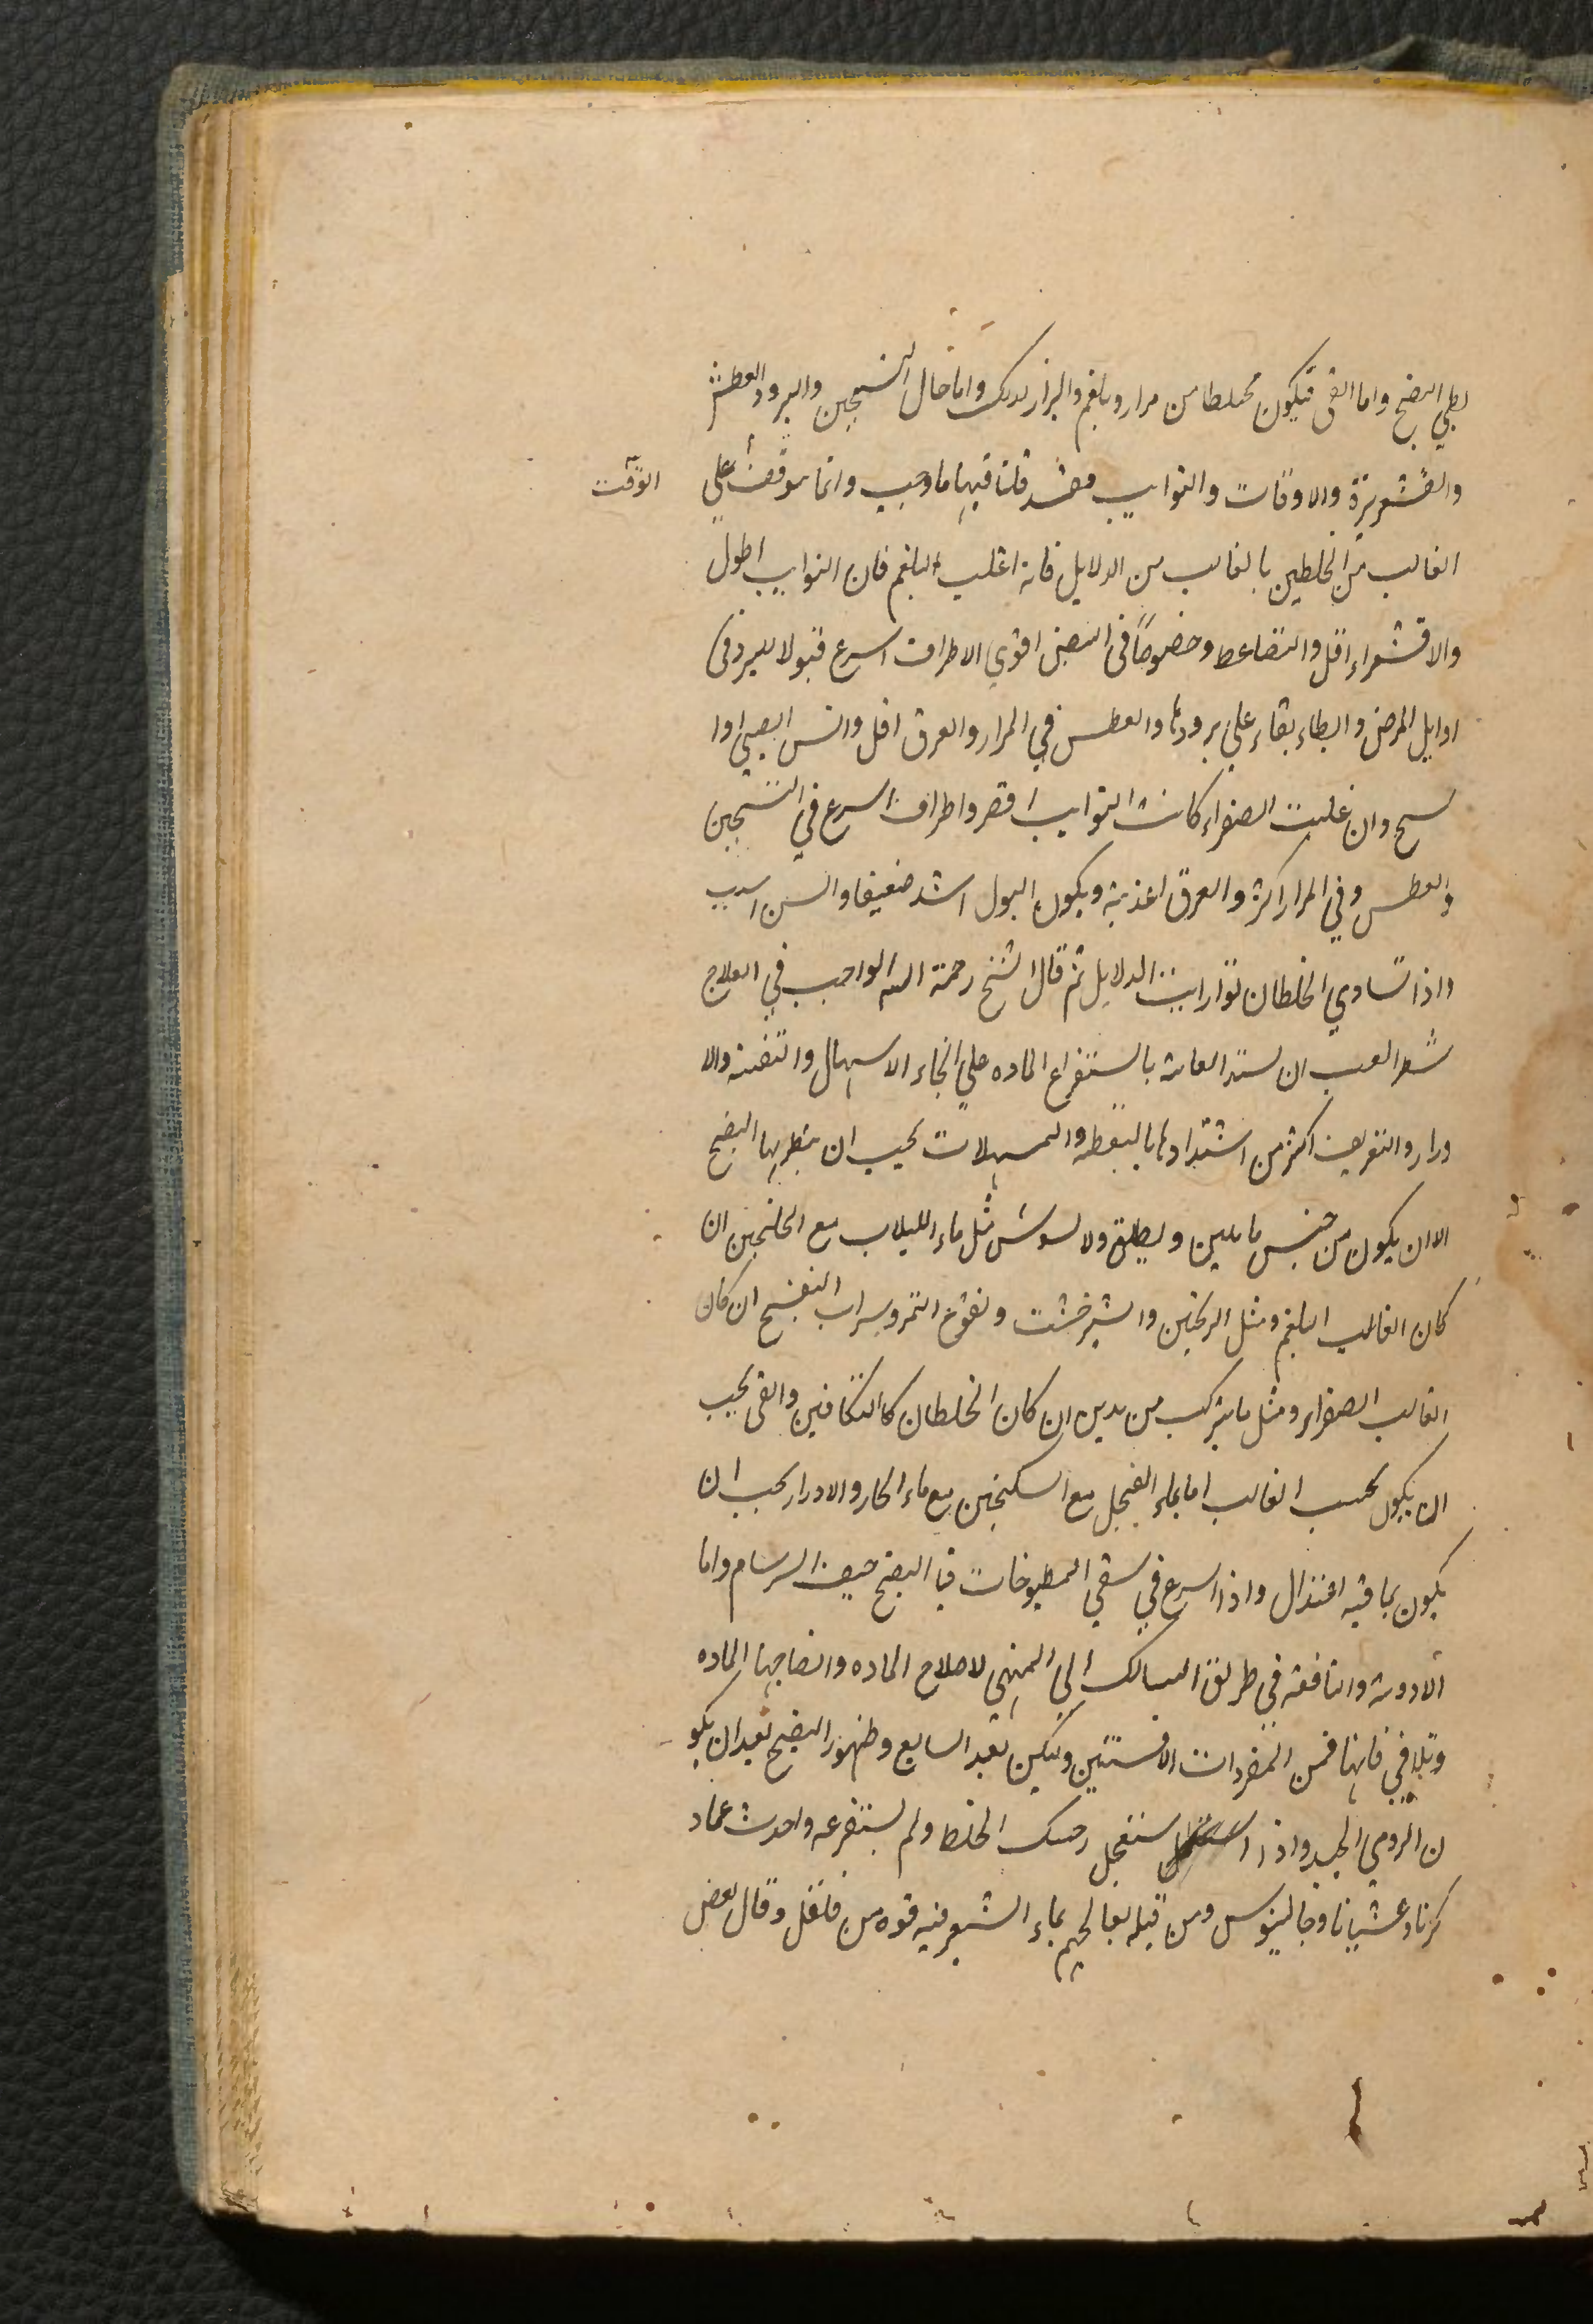 بطي النضج واما القى فيكون مختلطا من مرار وبلغم والبراز كذلك واما حال التسخين والبرود والعطش
والقشعريرة والاوقات والنوايب فقد قلنا فيها ما وجب وانما يوقف على الوقت
الغالب من الخلطين بالغالب من الدلايل فانه اغلب البلغم فان النوايب اطول
والاقشعراء اقل والتضاغط وخصوصاً فى النبض اقوي الاطراف اسرع قبولا للبرد فى
اوايل المرض وابطاء بقاء علي برودتها والعطس في المرار والعرق اقل والسن الصبي اوا
لشيخ وان غلبت الصفراء كانت النوايب اقصر واطراف اسرع في التسخين
والعطس وفي المرار اكثر والعرق اغذية ويكون البول اشد والسن
واذا تساوي الخلطان توازيت الدلايل ثم قال الشيخ رحمة الله الواجب في العلاج
شطر الغب ان تشتد العناية باستفراغ الماده علي انحاء الاسهال والتقئه والا
درار والتعريف اكثر من اشتدادها والمسهلات يجب ان ينظر بها النضج
الا ان يكون من جنس ما يلين ويطلق ولا يشوش مثل ماء اللبلاب مع الجلنجبين ان
كان الغالب البلغم ومثل والشيرخشت ونقوع التمر وشراب البنفسج ان كان
الغالب الصفراء ومثل ما يتركب من هذين ان كان الخلطان كالمتكافيين والقى يجب
ان يكون بحسب الغالب اما بماء الفجل مع السكنجبين مع ماء الحار والادرار يجب ان
يكون بما فيه اعتدال واذا اسرع في سقي المطبوخات قبل النضج خيف السرسام واما
الادوية والنافعه في طريق السالك الي المنتهي لاصلاح الماده وانضاجها الماده
وتلافي فانها فمن المفردات الافسنتين ولكن بعد السابع وظهور النضج بعد ان يكو
ن الرومي الجيد واذا استعجل حرك الخلط ولم يستفرغه واحدث
كربا وغشيانا وجالينوس ومن قبله يعالجهم بماء الشعير فيه قوه من فلفل وقال بعض